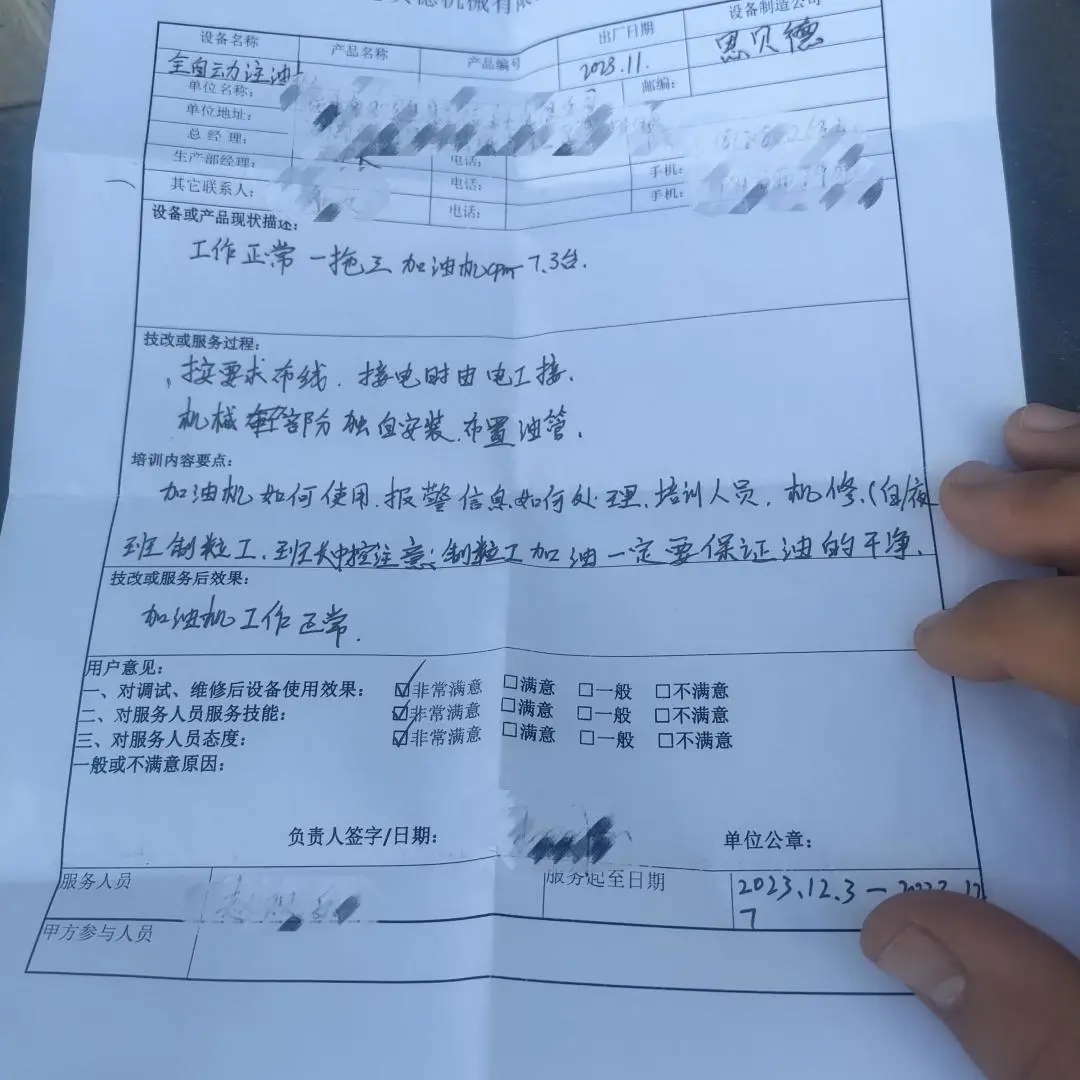 德机械有限
设备名称 产品名称 产品编号 出厂日期 设备制造公司
全自动注油 2023.11. 恩贝德
单位名称: 邮编:
单位地址:
总经理: 电话:
生产部经理: 电话: 手机:
其它联系人: 电话: 手机:
设备或产品现状描述:
工作正常一拖三加油机 7.3台.
技改或服务过程:
按要求布线.接电时由电工接.
机械 部份独自安装.布置油管.
培训内容要点:
加油机如何使用.报警信息如何处理.培训人员.机修.(白/夜
班制粒工.班长中控注意:制粒工加油一定要保证油的干净.
技改或服务后效果:
加油机工作正常.
用户意见:
一、对调试、维修后设备使用效果: ☑非常满意 □满意 □一般 □不满意
二、对服务人员服务技能: ☑非常满意 □满意 □一般 □不满意
三、对服务人员态度: ☑非常满意 □满意 □一般 □不满意
一般或不满意原因:
负责人签字/日期: 单位公章:
服务人员 服务起至日期 2023.12.3-2023.12
7
甲方参与人员